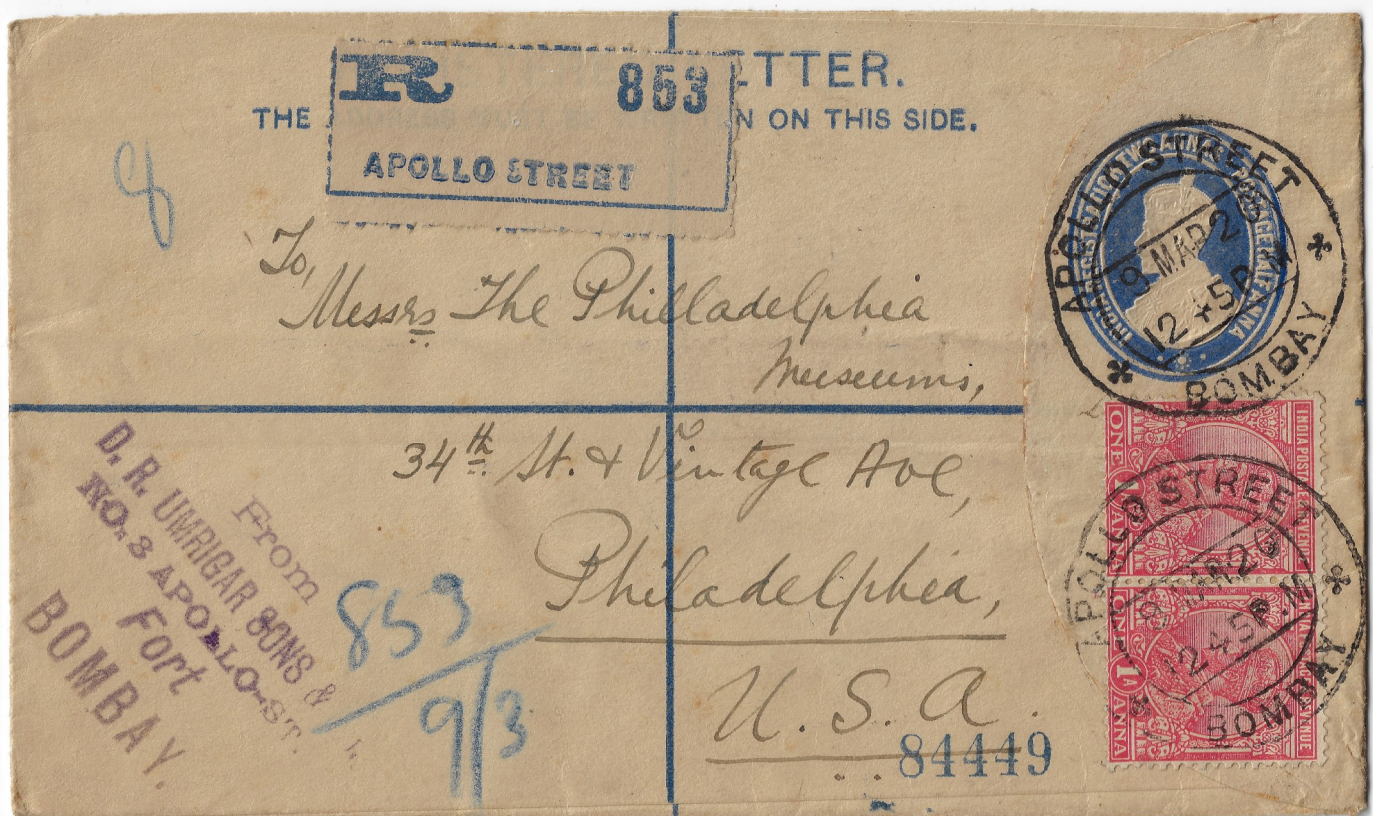 ETTER.
THE N ON THIS SIDE.
R 853
APOLLO STREET
To,
Messrs The Philladelphia
Museums,
34th St. & Vintage Ave,
Philadelphia,
U. S. A.
84449
From
D. R. UMRIGAR SONS &
NO. 3 APOLLO-ST.
Fort
BOMBAY.
853
9/3
APOLLO STREET
9 MAR 20
12 45 P.M
BOMBAY
TWO ANNAS
ANNA
INDIA POSTAGE
ONE 1A ANNA
APOLLO STREET
9 MAR 20
12 45 P.M
BOMBAY
REVENUE
ONE 1A ANNA